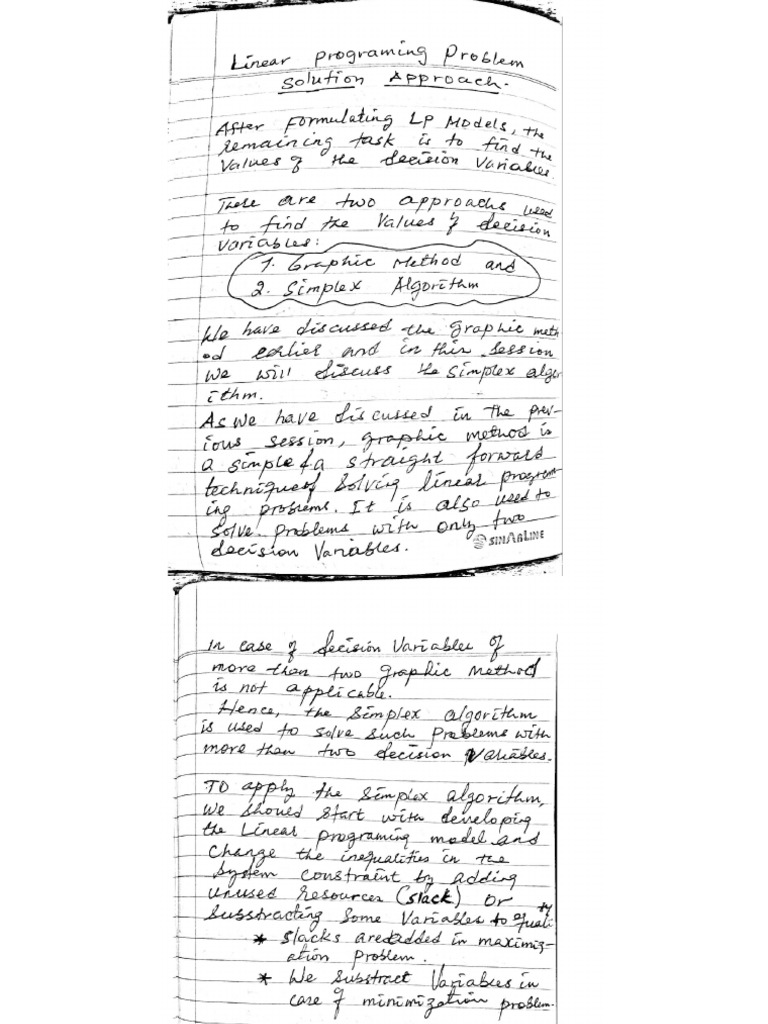 Linear programing Problem
Solution Approach.
After Formulating LP Models, the
remaining task is to find the
Values of the decision Variables
There are two approachs used
to find the Values of decision
Variables:
1. Graphic Method and
2. Simplex Algorithm
We have discussed the graphic meth
od earlier and in this session
we will discuss the simplex algor
ithm.
As we have discussed in the prev-
ious session, graphic method is
a simple & a straight forward
techniques of solving linear program-
ing problems. It is also used to
solve problems with only two
decision Variables.
SINARLINE
In case of decision Variables of
more than two graphic method
is not applicable.
Hence, the simplex algorithm
is used to solve such problems with
more than two decision Variables.
To apply the simplex algorithm,
we should start with developing
the Linear programing model and
change the inequalities in the
system constraint by adding
unused resources (slack) or
Substracting some Variables to equali
ty
* slacks are added in maximiz-
ation problem.
* We substract Variables in
case of minimization problem.